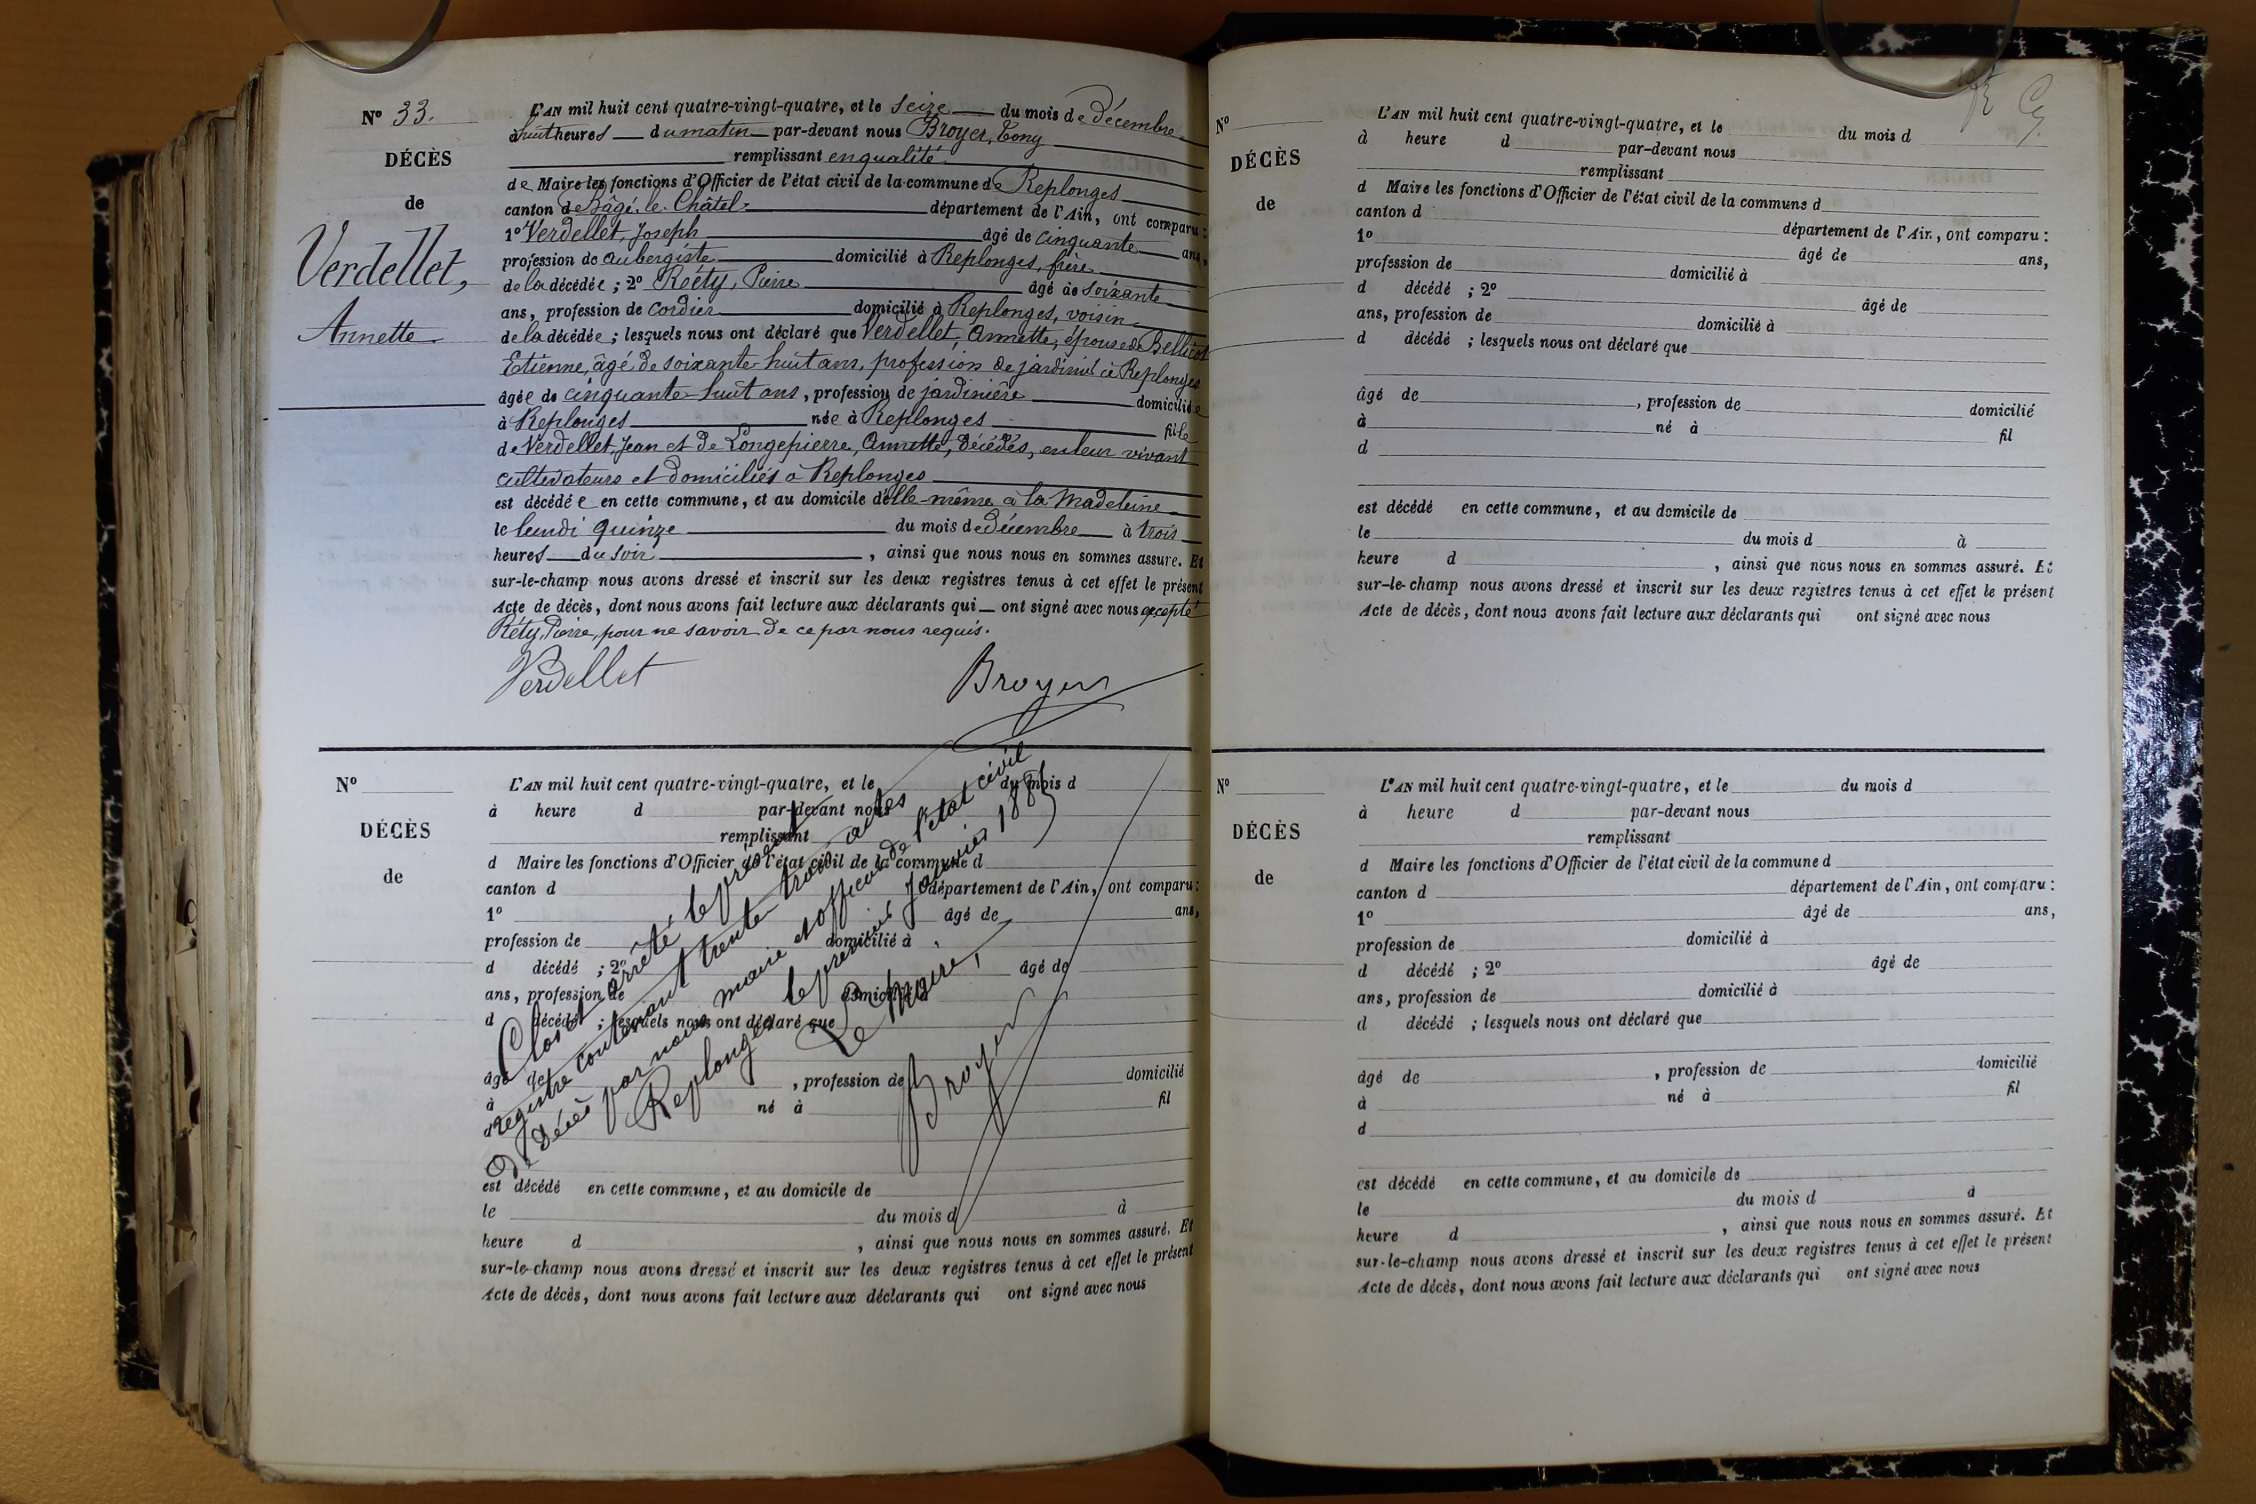 Nº 33.
DÉCÈS
de
Verdellet,
Annette
L'AN mil huit cent quatre-vingt-quatre, et le seize du mois de Décembre
à huit heures du matin par-devant nous Broyer, Tony
remplissant en qualité
de Maire les fonctions d'Officier de l'état civil de la commune de Replonges
canton de Bâgé-le-Châtel département de l'Ain, ont comparu :
1º Verdellet, Joseph âgé de cinquante ans,
profession de aubergiste domicilié à Replonges, frère
de la décédée ; 2º Réety, Pierre âgé de soixante
ans, profession de cordier domicilié à Replonges, voisin
de la décédée ; lesquels nous ont déclaré que Verdellet, Annette, épouse de Bellicot
Etienne, âgé de soixante huit ans, profession de jardinier à Replonges
âgée de cinquante-huit ans, profession de jardinière domiciliée
à Replonges née à Replonges fille
de Verdellet, Jean et de Longepierre, Annette, décédés, en leur vivant
cultivateurs et domiciliés à Replonges
est décédée en cette commune, et au domicile d'elle-même à la Madeleine
le lundi quinze du mois de Décembre à trois
heures du soir, ainsi que nous nous en sommes assuré. Et
sur-le-champ nous avons dressé et inscrit sur les deux registres tenus à cet effet le présent
Acte de décès, dont nous avons fait lecture aux déclarants qui ont signé avec nous excepté
Réty, Pierre, pour ne savoir de ce par nous requis.
Verdellet Broyer
Nº
DÉCÈS
de
L'AN mil huit cent quatre-vingt-quatre, et le du mois d
à heure d par-devant nous
remplissant
d Maire les fonctions d'Officier de l'état civil de la commune d
canton d département de l'Ain, ont comparu :
1º âgé de ans,
profession de domicilié à
d décédé ; 2º âgé de
ans, profession de domicilié à
d décédé ; lesquels nous ont déclaré que
âgé de , profession de domicilié
à né à fil
d
est décédé en cette commune, et au domicile de
le du mois d à
heure d , ainsi que nous nous en sommes assuré. Et
sur-le-champ nous avons dressé et inscrit sur les deux registres tenus à cet effet le présent
Acte de décès, dont nous avons fait lecture aux déclarants qui ont signé avec nous
Clos et arrêté le présent
registre contenant trente trois actes
de décès par nous maire et officier de l'état civil
Replonges le premier Janvier 1885
Le Maire,
Broyer
Nº
DÉCÈS
de
L'AN mil huit cent quatre-vingt-quatre, et le du mois d
à heure d par-devant nous
remplissant
d Maire les fonctions d'Officier de l'état civil de la commune d
canton d département de l'Ain, ont comparu :
1º âgé de ans,
profession de domicilié à
d décédé ; 2º âgé de
ans, profession de domicilié à
d décédé ; lesquels nous ont déclaré que
âgé de , profession de domicilié
à né à fil
d
est décédé en cette commune, et au domicile de
le du mois d à
heure d , ainsi que nous nous en sommes assuré. Et
sur-le-champ nous avons dressé et inscrit sur les deux registres tenus à cet effet le présent
Acte de décès, dont nous avons fait lecture aux déclarants qui ont signé avec nous
Nº
DÉCÈS
de
L'AN mil huit cent quatre-vingt-quatre, et le du mois d
à heure d par-devant nous
remplissant
d Maire les fonctions d'Officier de l'état civil de la commune d
canton d département de l'Ain, ont comparu :
1º âgé de ans,
profession de domicilié à
d décédé ; 2º âgé de
ans, profession de domicilié à
d décédé ; lesquels nous ont déclaré que
âgé de , profession de domicilié
à né à fil
d
est décédé en cette commune, et au domicile de
le du mois d à
heure d , ainsi que nous nous en sommes assuré. Et
sur-le-champ nous avons dressé et inscrit sur les deux registres tenus à cet effet le présent
Acte de décès, dont nous avons fait lecture aux déclarants qui ont signé avec nous